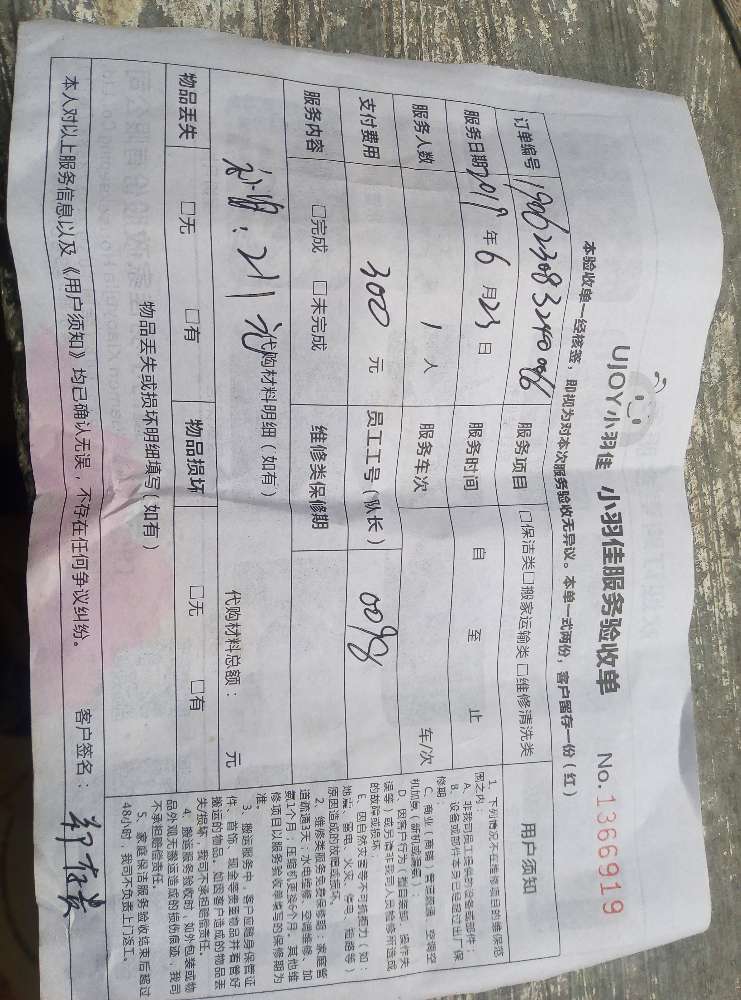 UJOY小羽佳 小羽佳服务验收单 No.1366919
本验收单一经核签，即视为对本次服务验收无异议。本单一式两份，客户留存一份（红）
订单编号 服务项目 □保洁类□搬家运输类□维修清洗类
服务日期 2019年6月23日 服务时间 自 至 止
服务人数 1人 服务车次 车/次
支付费用 300元 员工工号（队长） 0098
服务内容 □完成 □未完成 维修类保修期
代购材料明细（如有） 代购材料总额： 元
：211元
物品丢失 □无 □有 物品损坏 □无 □有
物品丢失或损坏明细填写（如有）
本人对以上服务信息以及《用户须知》均已确认无误，不存在任何争议纠纷。 客户签名：
用户须知
1、下列情况不在维修项目的维保范
围之内：
A、非我司员工提供的设备或部件；
B、设备或部件本身已经超过出厂保
修期；
C、商业（商铺）管道疏通、空调空
D、因客户行为（擅自维修、操作失
误等）或另请非我司人员检修所造成
的故障或损坏；
E、因自然灾害等不可抗拒力（如：
原因造成的故障或损坏。
2、维修类服务免费保修期：家庭管
道疏通3天，水电维修、空调维修、加
修项目以服务验收单填写的保修期为
准。
3、搬运服务中，客户应随身保管证
件、首饰、现金等贵重物品并看管好
搬运的物品。如因客户造成的物品丢
失/损坏，我司不承担赔偿责任。
4、搬运服务验收时，如外包装或物
品外观无搬运造成的损伤痕迹，我司
不承担赔偿责任。
5、家庭保洁服务验收结束后超过
48小时，我司不负责上门返工。